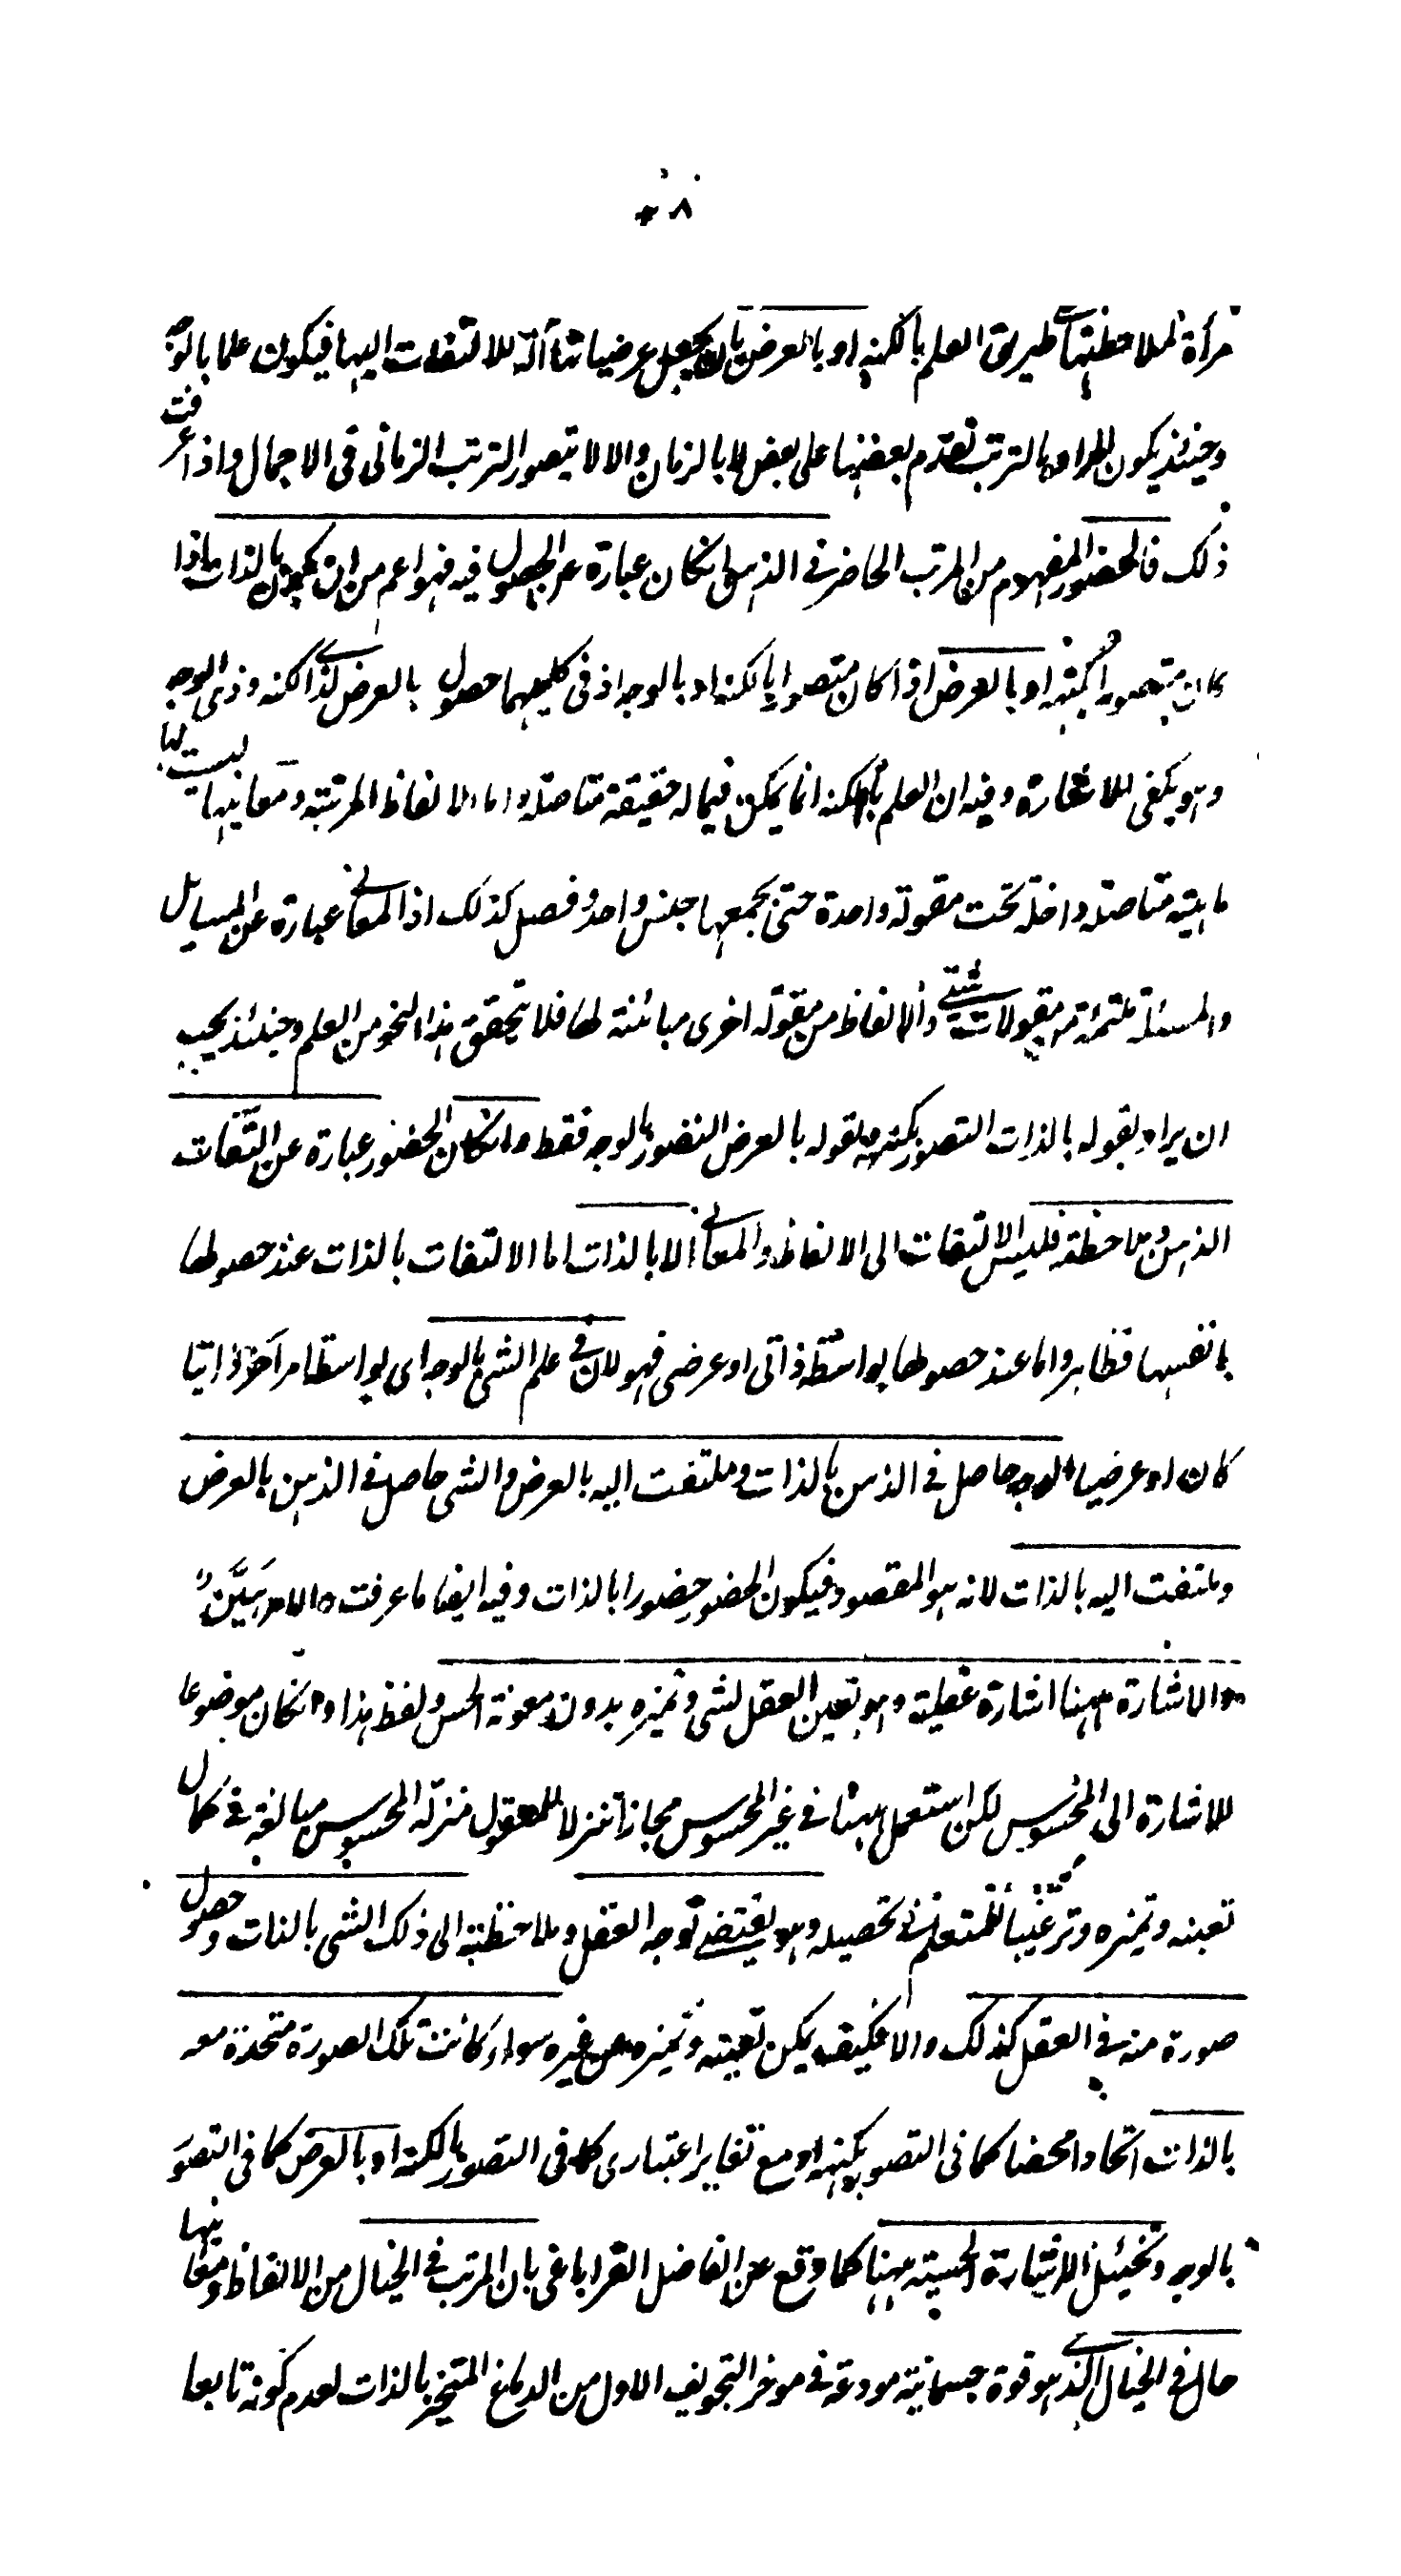 ٨
مرأة لملاحظتها على طريق العلم بالكنه او بالعرض بان يجعل عرضياتها آلة للالتفات اليها فيكون علما بالوجه
وحينئذ يكون المراد بالترتب تقدم بعضها على بعض لا بالزمان والا لا يتصور الترتب الزمانى فى الاجمال واذا عرفت
ذلك فالحضور المفهوم من المرتب الحاضر فى الذهن ان كان عبارة عن الحصول فيه فهو اعم من ان يكون بالذات اذا
كان متصورا بكنهه او بالعرض اذا كان متصورا بالكنه او بالوجه اذ فى كليهما حصول بالعرض لذى الكنه وذى الوجه
وهو يكفى للاشارة وفيه ان العلم بالكنه انما يمكن فيما له حقيقة متاصلة واما الالفاظ المرتبة ومعانيها ليست لها
ماهية متاصلة داخلة تحت مقولة واحدة حتى يجمعها جنس واحد وفصل كذلك اذ المعانى عبارة عن المسايل
والمسئلة ملتئمة من مقولات شتى والالفاظ من مقولة اخرى مبائنة لها فلا يتحقق هذا النحو من العلم وحينئذ يجب
ان يراد بقوله بالذات التصور بكنهه وبقوله بالعرض التصور بالوجه فقط وان كان الحضور عبارة عن التفات
الذهن وملاحظة فليس الالتفات الى الالفاظ والمعانى الا بالذات اما الالتفات بالذات عند حصولها
بانفسها فظاهر واما عند حصولها بواسطة ذاتى او عرضى فهو لان فى علم الشئ بالوجه اى بواسطة امر آخر ذاتيا
كان او عرضيا الوجه حاصل فى الذهن بالذات وملتفت اليه بالعرض والشى حاصل فى الذهن بالعرض
وملتفت اليه بالذات لانه هو المقصود فيكون الحضور حضورا بالذات وفيه ايضا ما عرفت والامر هَيِّنٌ
والاشارة ههنا اشارة عقلية وهو تعين العقل لشى وتميزه بدون معونة الحس ولفظ هذا وان كان موضوعا
للاشارة الى المحسوس لكن استعمل ههنا فى غير المحسوس مجازا تنزيلا للمعقول منزلة المحسوس مبالغة فى كمال
تعينه وتميزه وترغيبا للمتعلم فى تحصيله وهو يقتضى توجه العقل وملاحظته الى ذلك الشى بالذات وحصول
صورة منه فى العقل كذلك والا فكيف يمكن تعينه وتميزه عن غيره سواء كانت تلك الصورة متحدة معه
بالذات اتحادا محضا كما فى التصور بكنهه او مع تغاير اعتبارى كما فى التصور بالكنه او بالعرض كما فى التصور
بالوجه وتخييل الاشارة الحسية ههنا كما وقع عن الفاضل القراباغى بان المرتب فى الخيال من الالفاظ ومعانيها
حال فى الخيال الذى هو قوة جسمانية مودعة فى موخر التجويف الاول من الدماغ المتحيز بالذات لعدم كونه تابعا